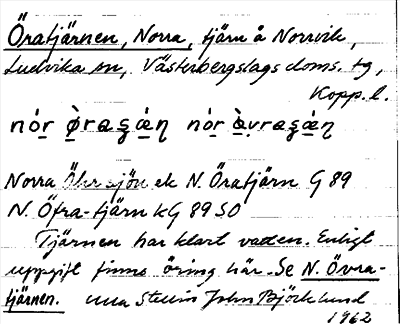 Öratjärnen, Norra, tjärn å Norrvik,
Ludvika sn, Västerbergslags doms. tg,
Kopp. l.
nór ø̀raʂǽn̥ nór æ̀vraʂǽn̥
Norra Öhrsjön ek N. Öratjärn G 89
N. Öfra-tjärn kG 89 SO
Tjärnen har klart vatten. Enligt
uppgift finns öring här. Se N. Övra-
tjärnen.
John Björklund
1962